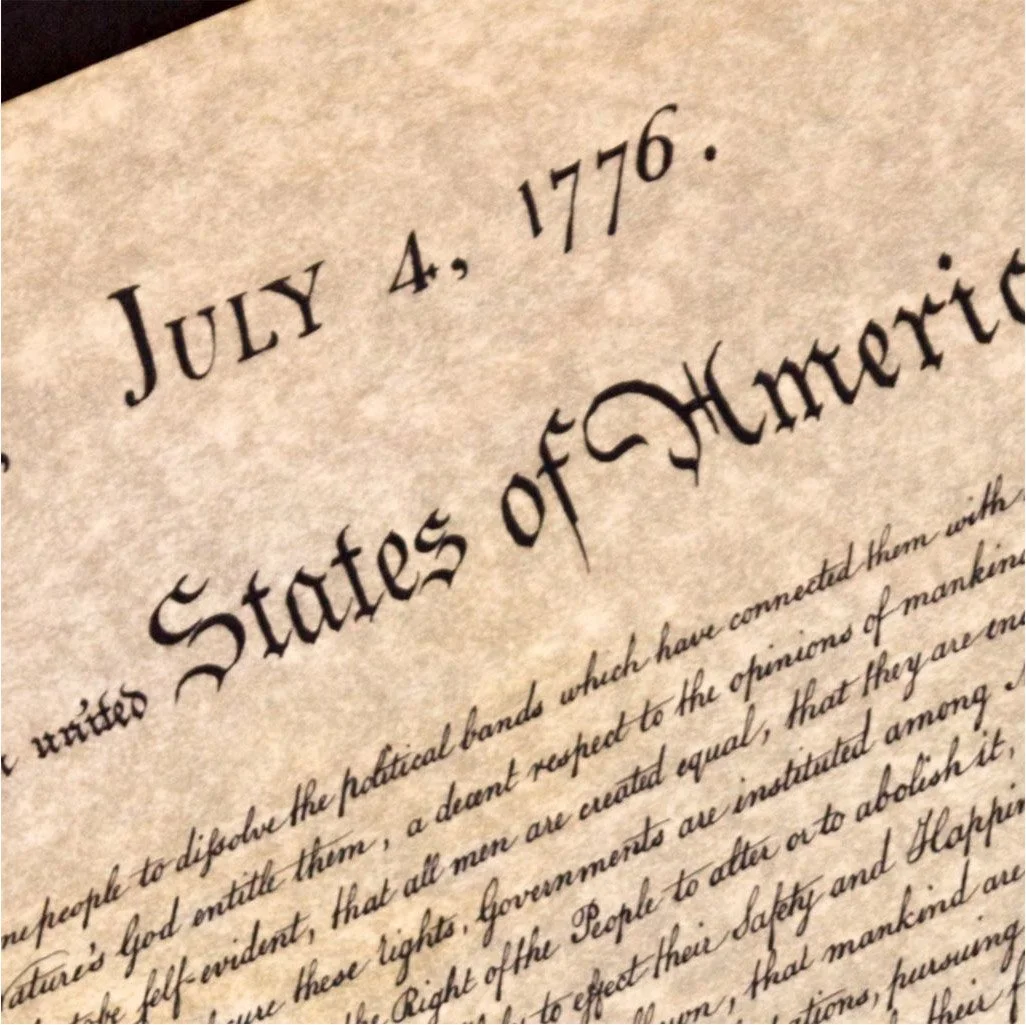 July 4, 1776.
united States of Americ
people to diſsolve the political bands which have connected them with
ature's God entitle them, a decent respect to the opinions of mankind
to be ſelf-evident, that all men are created equal, that they are en
cure these rights, Governments are instituted among
the Right of the People to alter or to abolish it,
to effect their Safety and Happin
that mankind are
ations, pursuing
their